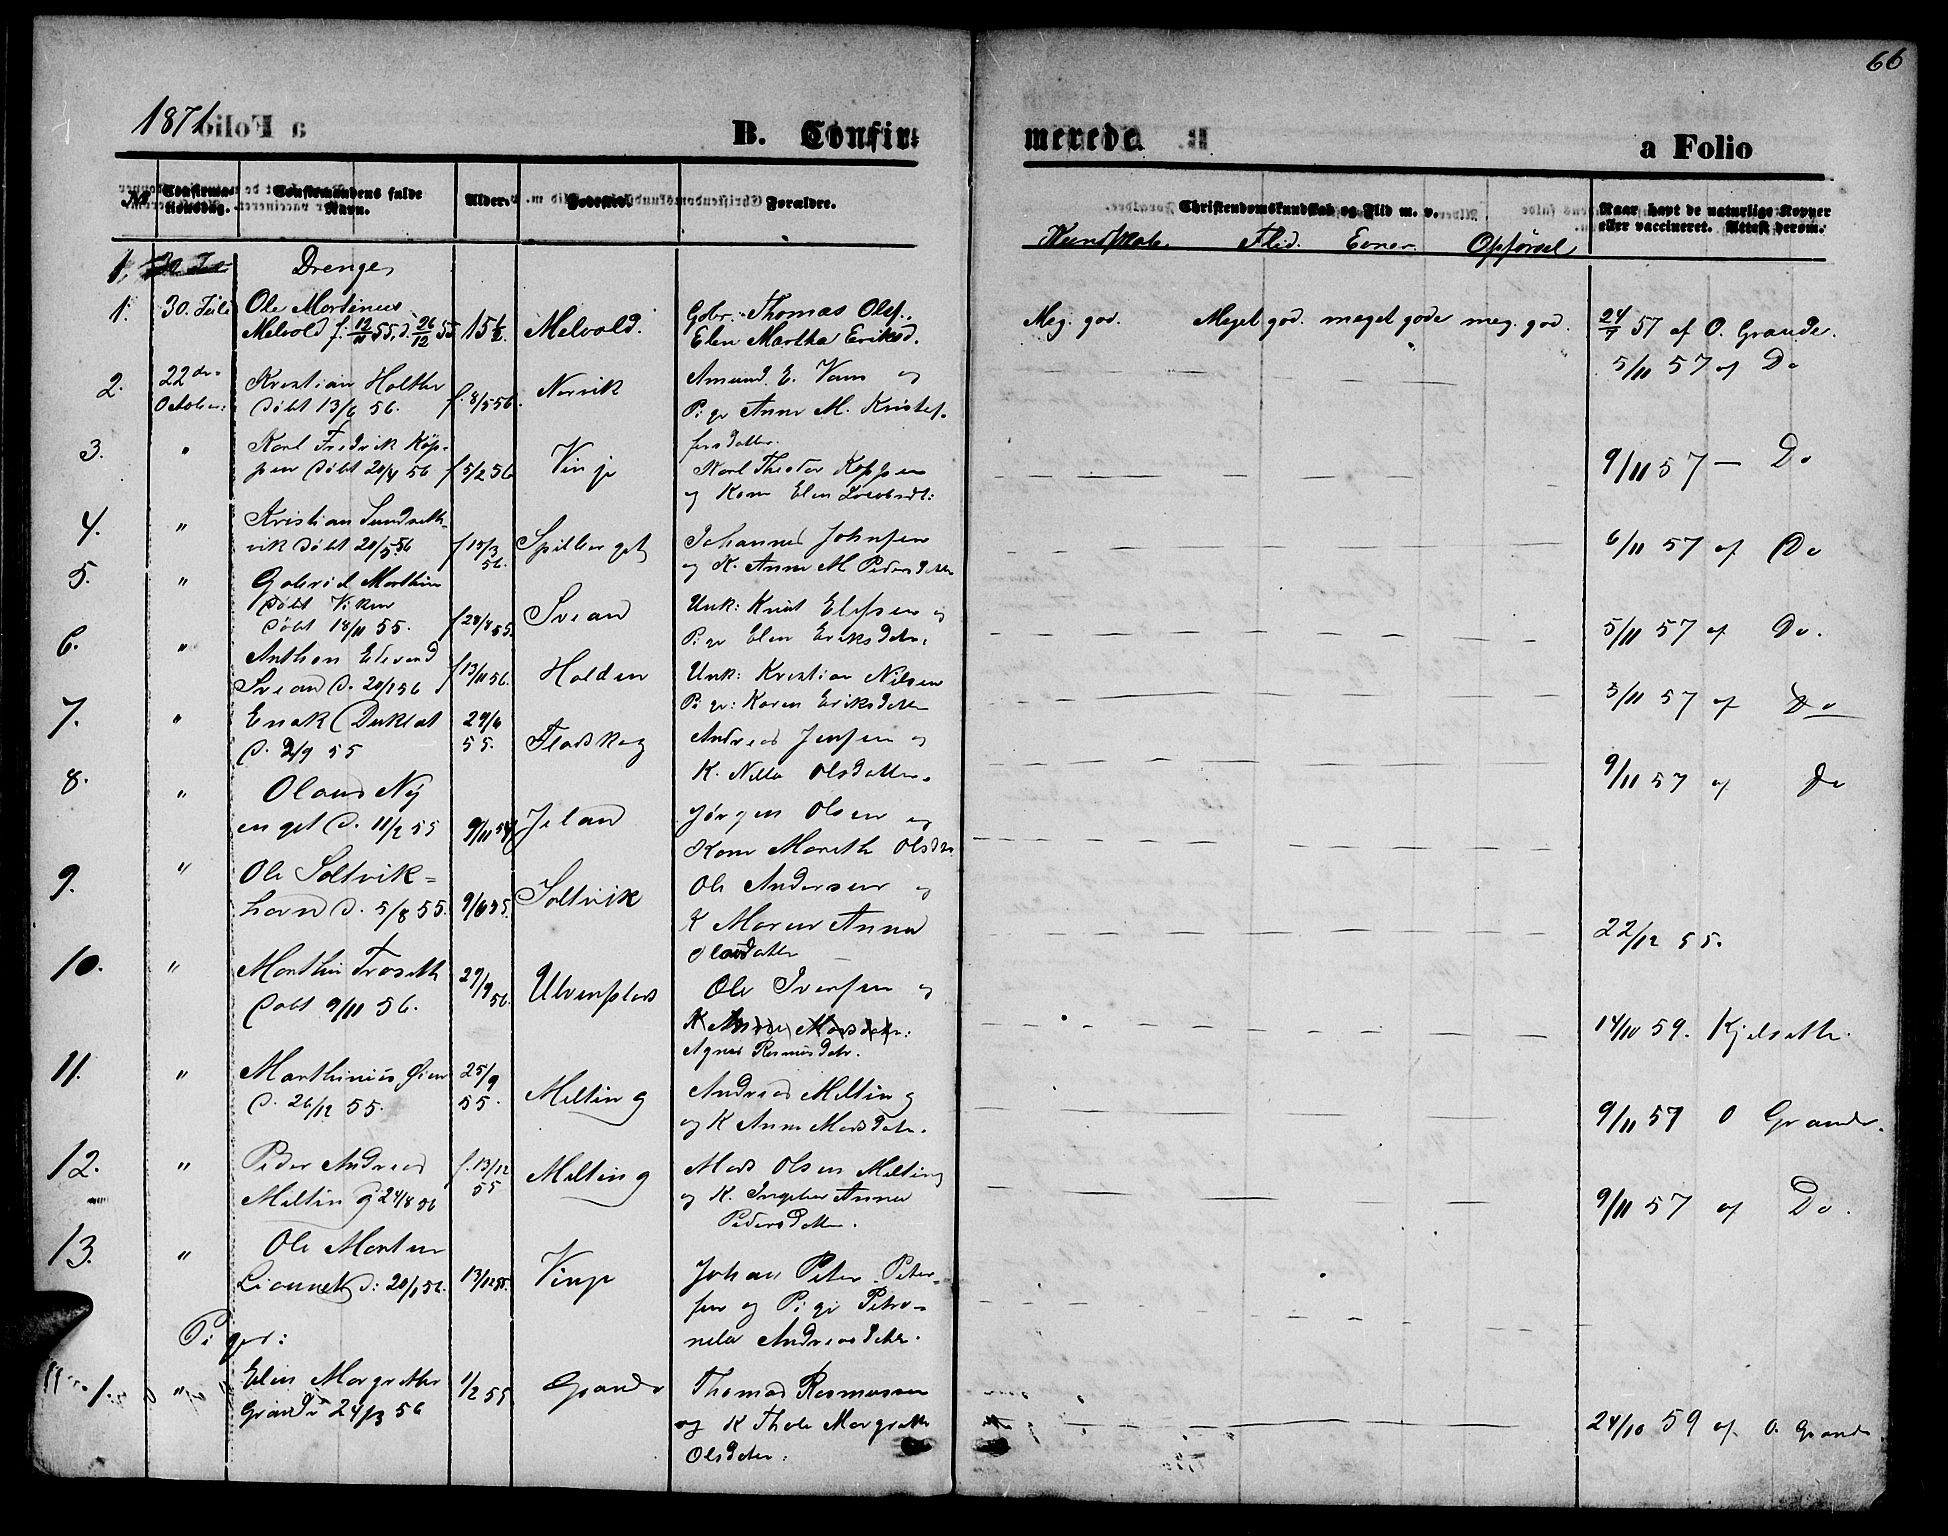 66
1871
B. Confir-
merede.
a Folio
No
Confirma-
tionsdag.
Confirmandens fulde
Navn.
Alder.
Fødested.
Forældre.
Christendomskundskab og Flid m. v.
Naar havt de naturlige Kopper
eller vaccineret. Attest derom.
Kundskab. Flid. Evner. Opførsel
Drenge
1. 30. Juli Ole Martinus
Melvold f. 12/11 55, d. 26/12 55 15½. Melvold. Gbr. Thomas Ols.,
Elen Martha Eriksd. Meg. god. Meget god. meget gode meg. god. 24/7 57 af O. Grande.
2. 22de October: Kristian Holthe
døbt 13/6 56. f. 8/5 56. Norvik Amund E. Vam og
Pige Anne M. Kristof-
fersdatter. 5/11 57 af Do
3. " Karl Fredrik Køp-
pen døbt 20/4 56 f 5/2 56 Vinje Karl Theodor Køppen
og Kone Elen Jacobsdt: 9/11 57 — Do
4. " Kristian Sundseth-
vik døbt 20/5 56 f 15/3 56. Spilberget Johannes Johnsen
og K. Anne M. Pedersdatter 6/11 57 af Do
5. " Gabriel Marthin
døbt Viken
døbt 18/11 55. f 28/8 55. Svean Unk: Knut Elefsen og
Pige Elen Eriksdatr. 5/11 57 af Do.
6. " Anthon Edevard
Svean d. 20/1 56 f 13/11 56. Holden Unk: Kristian Nilsen
Pige: Karen Eriksdatter 5/11 57 af Do
7. " Enok
d. 2/9 55 29/6 55. Flodskog Andreas Jensen og
K. Nilla Olsdatter. 9/11 57 af Do
8. " Olaus Ny
enget d. 11/2 55 9/11 54 Jelan Jørgen Olsen og
Kone Mareth Olsdtr
9. " Ole Saltvik-
havn d. 5/8 55. 9/6 55. Saltvik Ole Andersen og
K Maren Anna
Olausdatter 22/12 55.
10. " Morthin Troseth
døbt 9/11 56. 27/9 56. Ulvenplads Ole Iversen og
Agnes Rasmusdatr. 14/10 59. Kjelseth.
11. " Marthinus Øien
d. 26/12 55. 25/9 55. Melting Andreas Melting
og K Anne Marsdatr. 9/11 57 O Grande.
12. " Peder Andreas
Melting d 24/8 56 f. 13/12 55 Melting Mads Olsen Melting
og K. Ingeber Anna
Pedersdatter. 9/11 57 af Do.
13. " Ole Morten
d: 20/1 56. 13/12 55. Vinje Johan Peter Peter-
sen og Pige Petro-
nela Andreasdatr.
Piger:
1. " Elen Margrethe
Grande 24/3 56 1/2 55 Grande Thomas Rasmussen
og K Thale Margrethe
Olsdatter. 24/10 59 af O. Grande